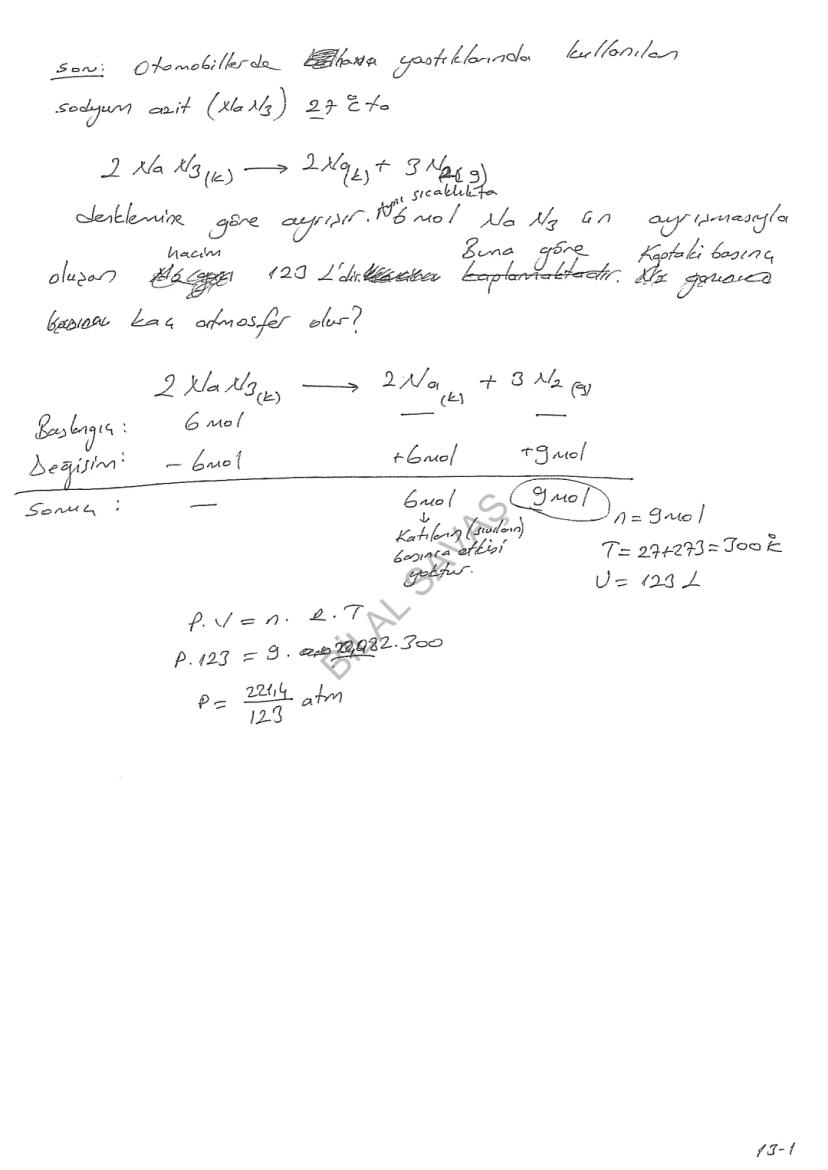 Soru: Otomobillerde hava yastıklarında kullanılan
sodyum azit (NaN3) 27 °C ta
2 NaN3(k) → 2Na(k) + 3N2(g)
denklemine göre ayrışır. Aynı sıcaklıkta 6 mol NaN3 ün ayrışmasıyla
oluşan hacim 123 L'dir. Buna göre Kaptaki basınç
kaç atmosfer olur?
2 NaN3(k) → 2Na(k) + 3N2(g)
Başlangıç: 6 mol — —
Değişim: - 6mol +6mol +9mol
Sonuç: — 6mol 9mol
↓
Katıların (sıvıların)
basınca etkisi
yoktur.
n = 9mol
T = 27+273 = 300 °K
V = 123 L
P.V = n. R.T
P.123 = 9. 0,082.300
P = 221,4/123 atm
BİLAL SAVAŞ
13-1